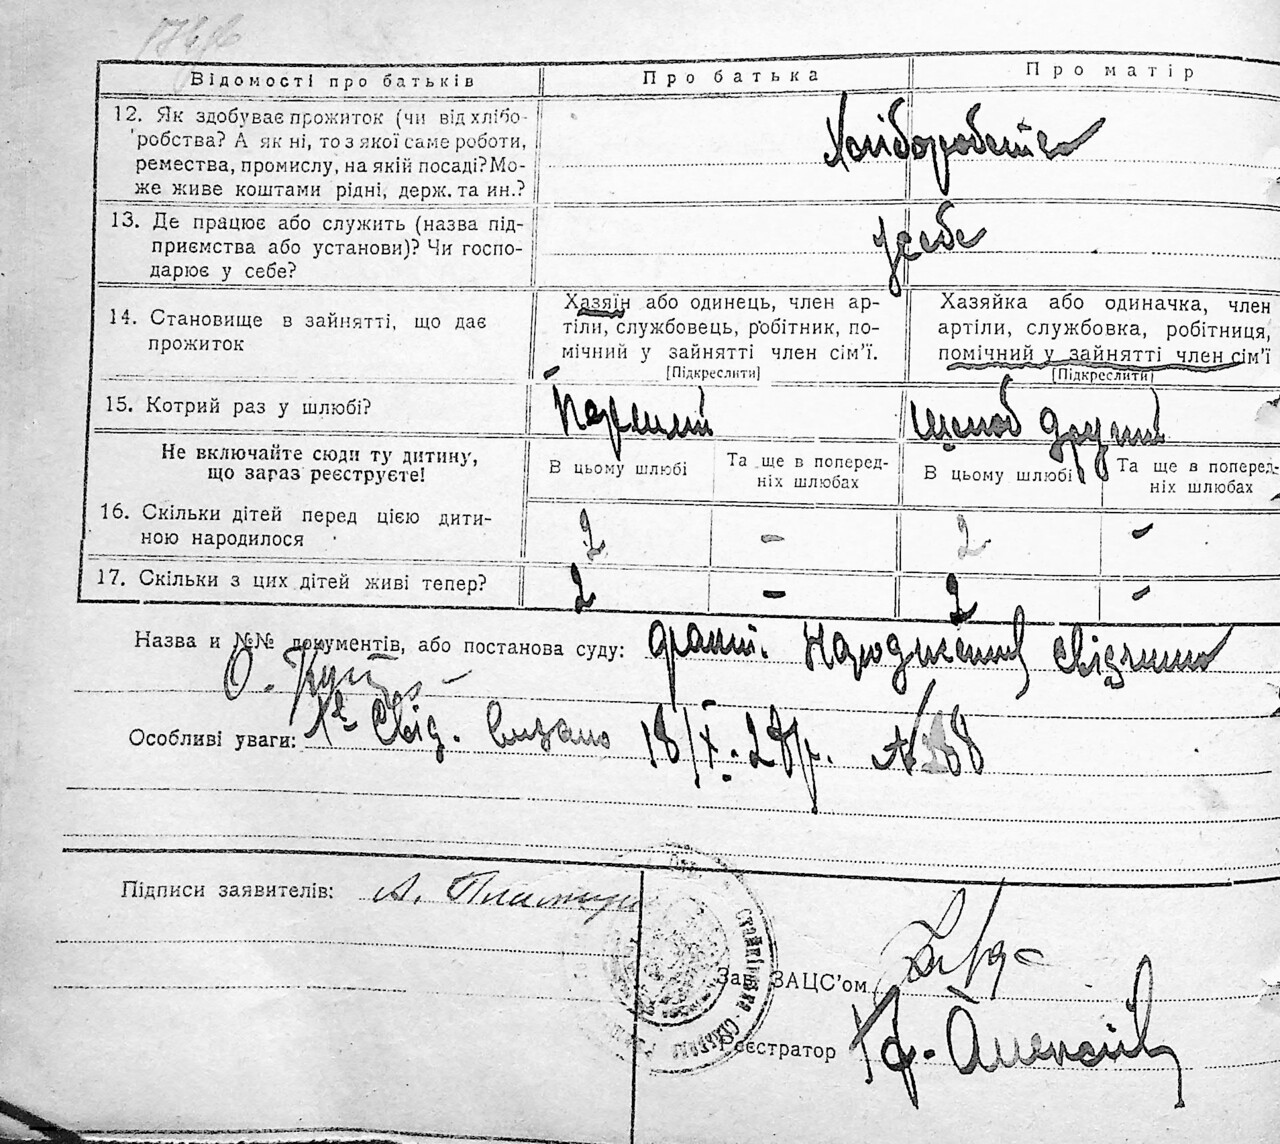 Відомості про батьків
Про батька
Про матір
12. Як здобуває прожиток (чи від хлібо-
робства? А як ні, то з якої саме роботи,
ремества, промислу, на якій посаді? Мо-
же живе коштами рідні, держ. та ин.?
Хліборобство
13. Де працює або служить (назва під-
приємства або установи)? Чи госпо-
дарює у себе?
У себе
14. Становище в зайнятті, що дає
прожиток
Хазяїн або одинець, член ар-
тіли, службовець, робітник, по-
мічний у зайнятті член сім'ї.
[Підкреслити]
Хазяйка або одиначка, член
артіли, службовка, робітниця,
помічний у зайнятті член сім'ї
[Підкреслити]
15. Котрий раз у шлюбі?
Перший
шлюб другий
Не включайте сюди ту дитину,
що зараз реєструєте!
В цьому шлюбі
Та ще в поперед-
ніх шлюбах
В цьому шлюбі
Та ще в поперед-
ніх шлюбах
16. Скільки дітей перед цією дити-
ною народилося
2 - 2 -
17. Скільки з цих дітей живі тепер?
2 - 2 -
Назва и №№ документів, або постанова суду:
Особливі уваги: Свід. видано 18/X.
Підписи заявителів: А.
Зав. ЗАЦС'ом
Реєстратор